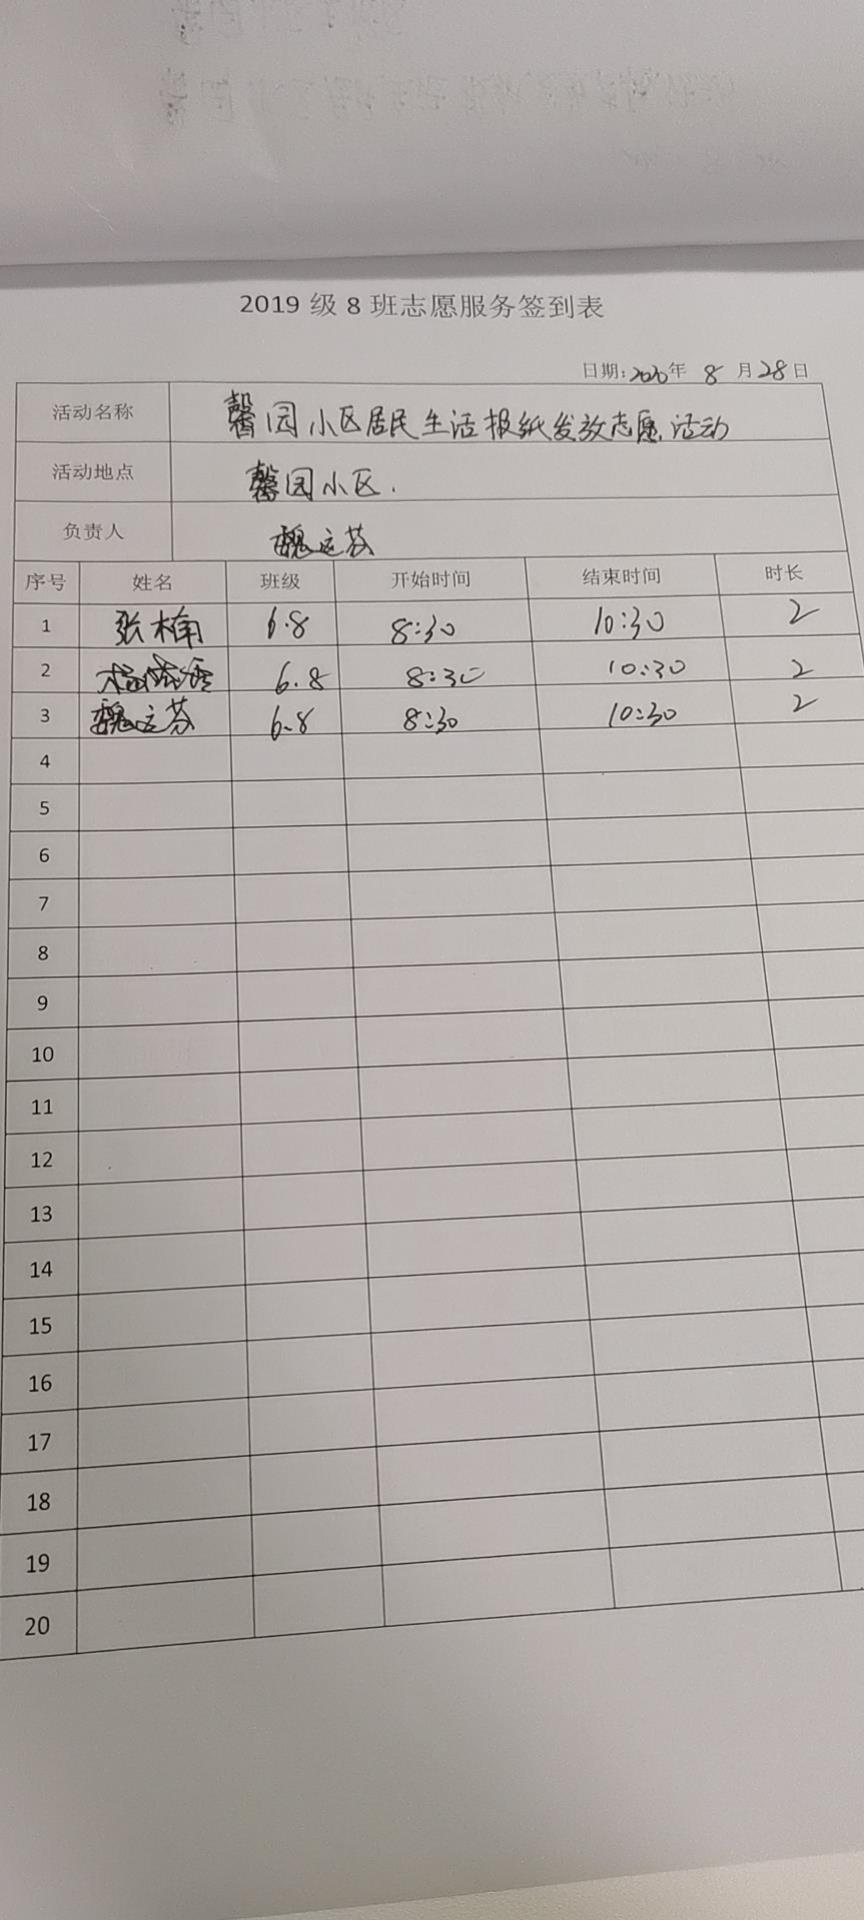 2019 级 8 班志愿服务签到表
日期:2020年 8 月28日
活动名称 馨园小区居民生活报纸发放志愿活动
活动地点 馨园小区.
负责人 魏运芬
序号 姓名 班级 开始时间 结束时间 时长
1 张楠 6.8 8:30 10:30 2
2 杨 6.8 8:30 10:30 2
3 魏运芬 6.8 8:30 10:30 2
4
5
6
7
8
9
10
11
12
13
14
15
16
17
18
19
20